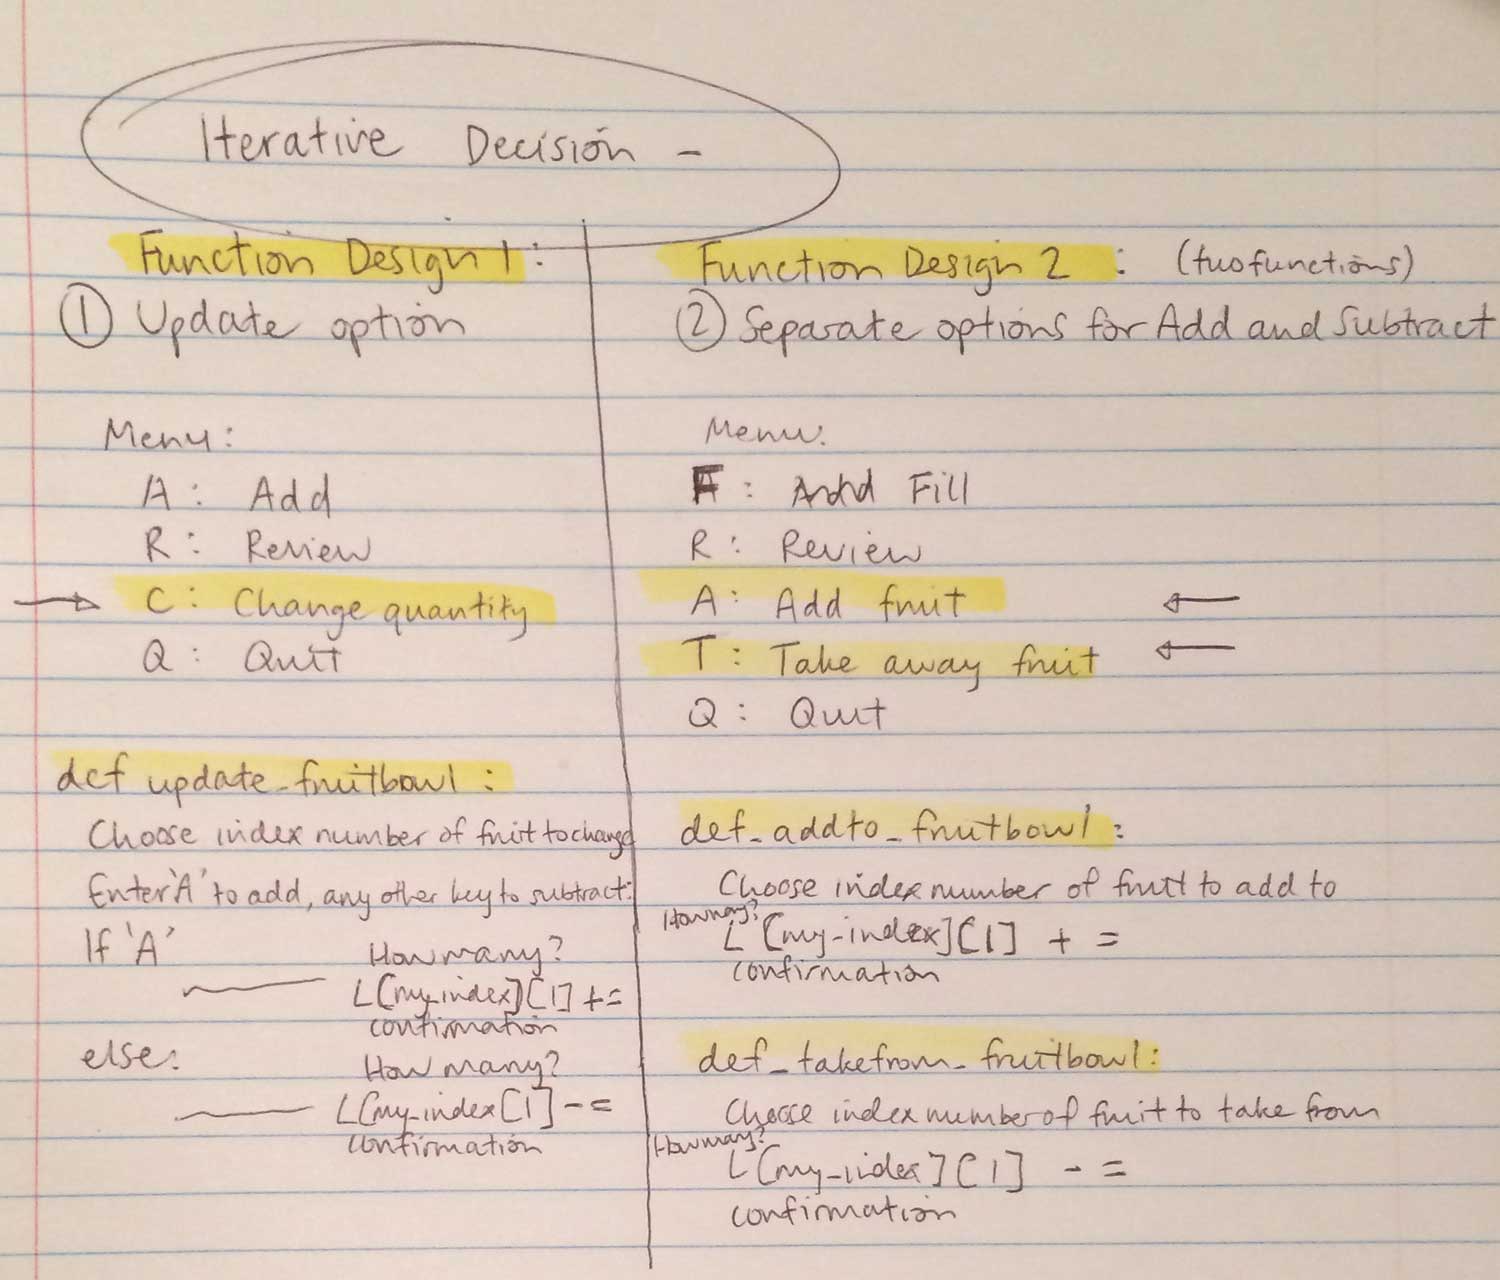 Iterative Decision -
Function Design 1:
① Update option
Menu:
A: Add
R: Review
C: Change quantity
Q: Quit
def update_fruitbowl:
Choose index number of fruit to change
Enter 'A' to add, any other key to subtract:
If 'A'
How many?
L[my_index][1] +=
confirmation
else:
How many?
L[my_index[1] -=
confirmation
Function Design 2: (two functions)
② Separate options for Add and Subtract
Menu:
F: Fill
R: Review
A: Add fruit
T: Take away fruit
Q: Quit
def_addto_fruitbowl:
Choose index number of fruit to add to
How many?
L[my_index][1] +=
confirmation
def_takefrom_fruitbowl:
Choose index number of fruit to take from
How many?
L[my_index][1] -=
confirmation